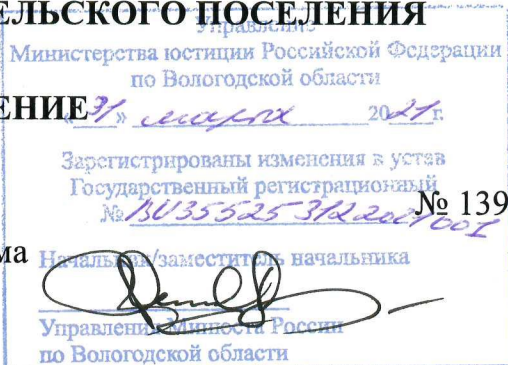 ЕЛЬСКОГО ПОСЕЛЕНИЯ
Управление
Министерства юстиции Российской Федерации
по Вологодской области
ЕНИЕ «31» марта 2021г.
Зарегистрированы изменения в устав
Государственный регистрационный
№ RU355253122021001 № 139
ма Начальник/заместитель начальника
Управления Минюста России
по Вологодской области